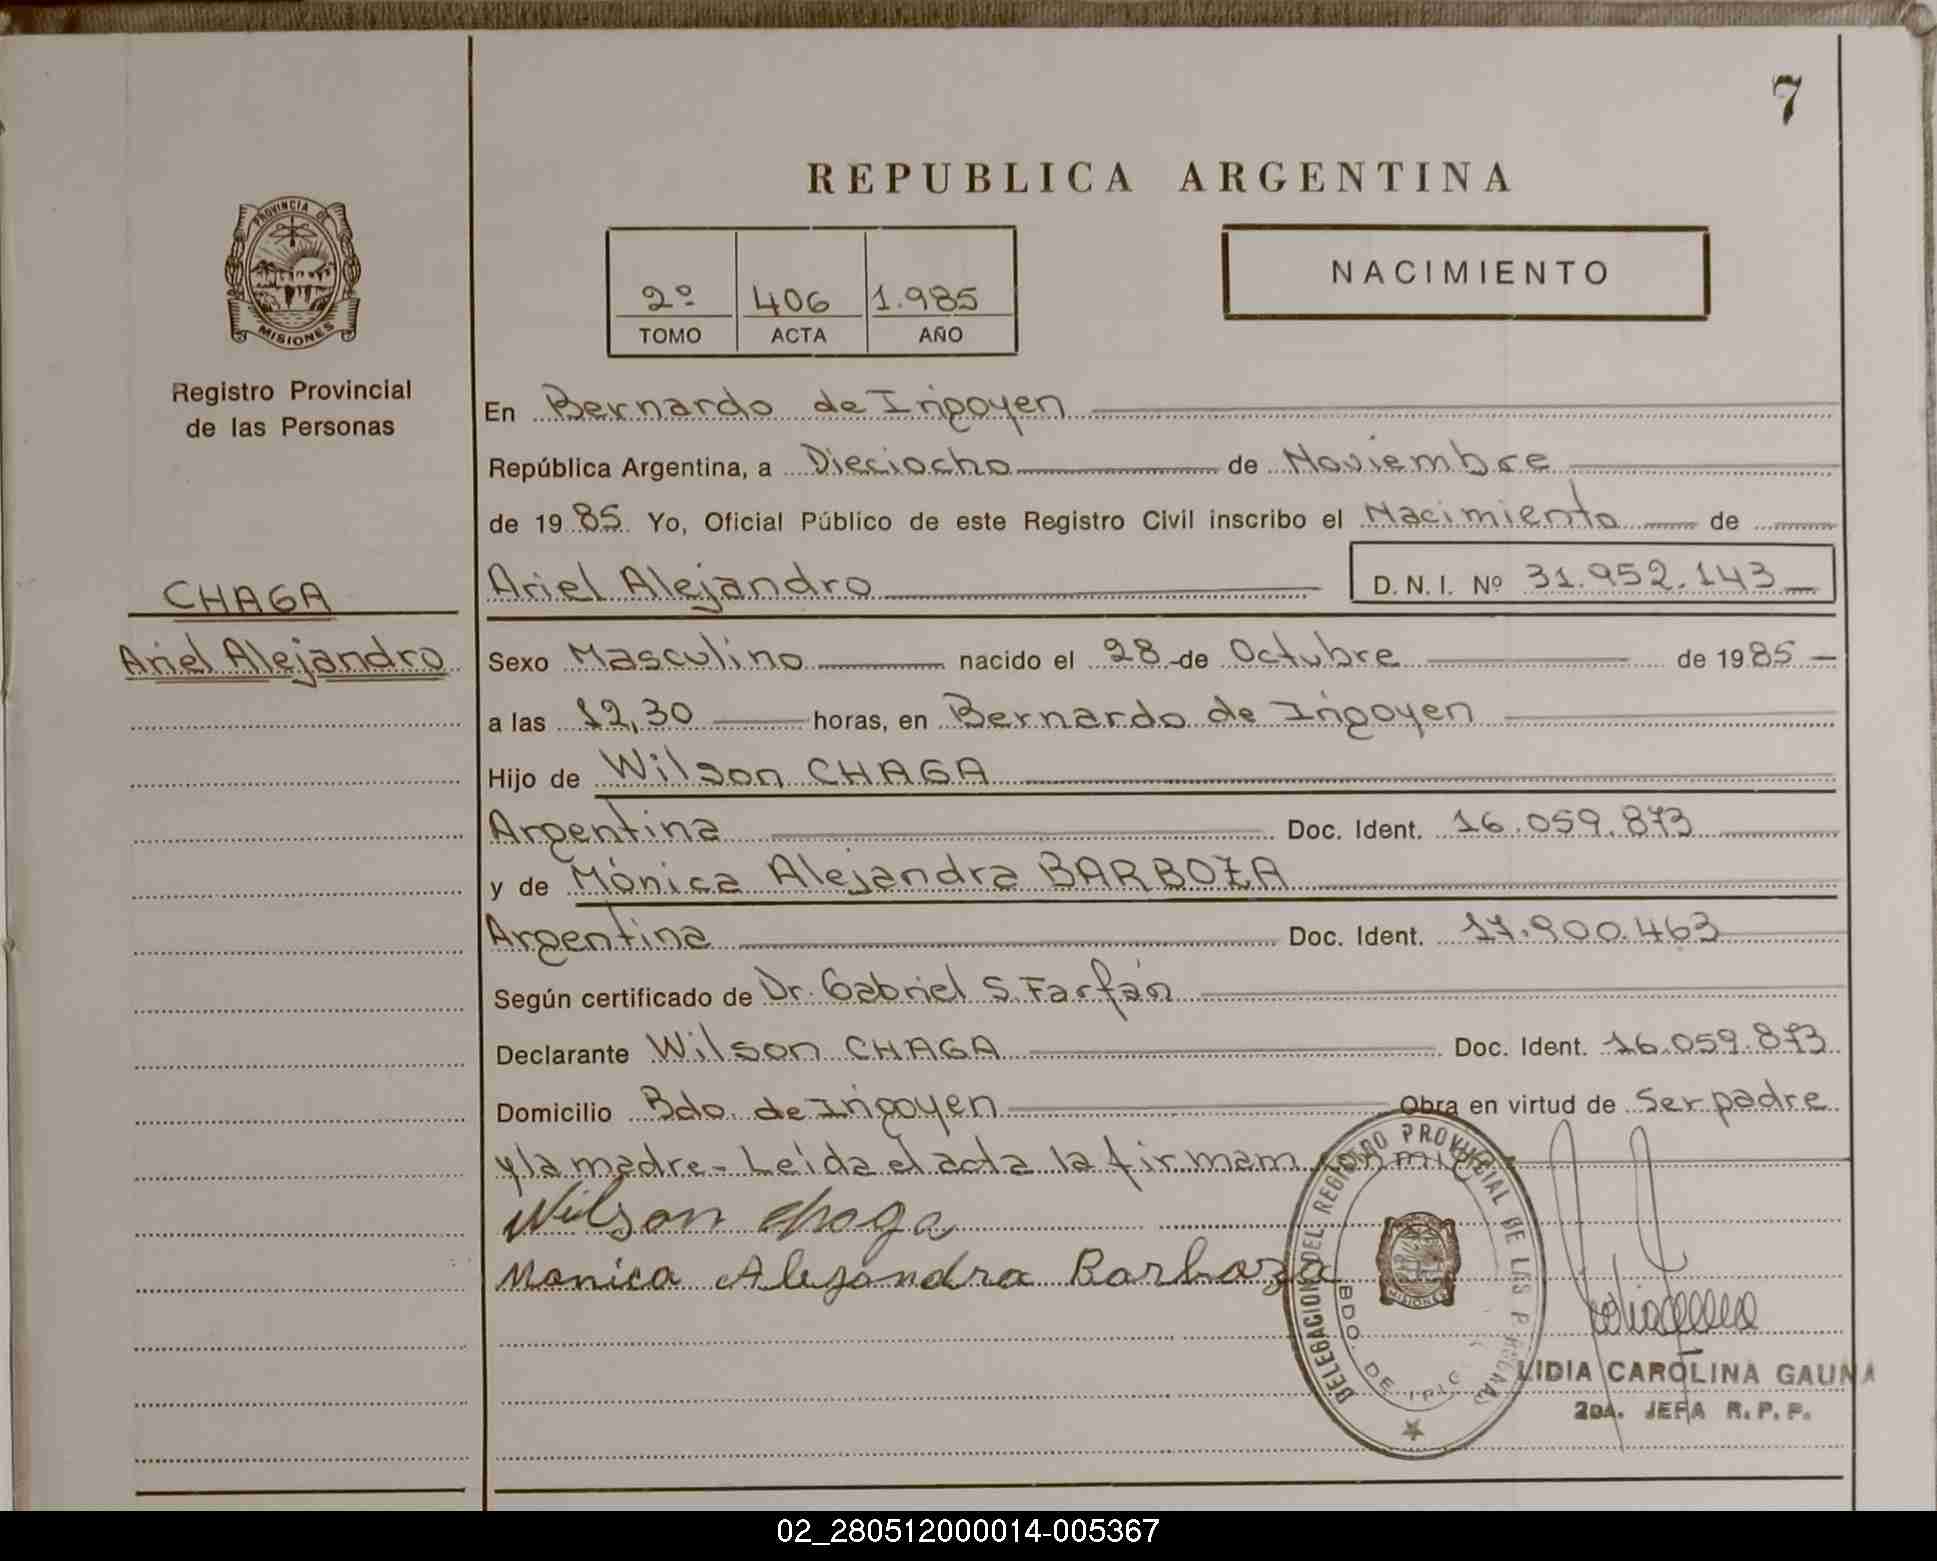 7
REPUBLICA ARGENTINA
PROVINCIA DE
MISIONES
NACIMIENTO
2º 406 1.985
TOMO ACTA AÑO
Registro Provincial
de las Personas
En Bernardo de Irigoyen
República Argentina, a Dieciocho de Noviembre
de 1985 Yo, Oficial Público de este Registro Civil inscribo el Nacimiento de
CHAGA
Ariel Alejandro D. N. I. Nº 31.952.143
Ariel Alejandro
Sexo Masculino nacido el 28 de Octubre de 1985
a las 12,30 horas, en Bernardo de Irigoyen
Hijo de Wilson CHAGA
Argentina Doc. Ident. 16.059.873
y de Mónica Alejandra BARBOZA
Argentina Doc. Ident. 17.900.463
Según certificado de Dr. Gabriel S. Farfán
Declarante Wilson CHAGA Doc. Ident. 16.059.873
Domicilio Bdo. de Irigoyen Obra en virtud de Ser padre
y la madre - Leída el acta la firmam conmigo
Wilson Chaga
Monica Alejandra Barboza
DELEGACION DEL REGISTRO PROVINCIAL DE LAS PERSONAS
BDO. DE
MISIONES
LIDIA CAROLINA GAUNA
2DA. JEFA R. P. P.
02_280512000014-005367